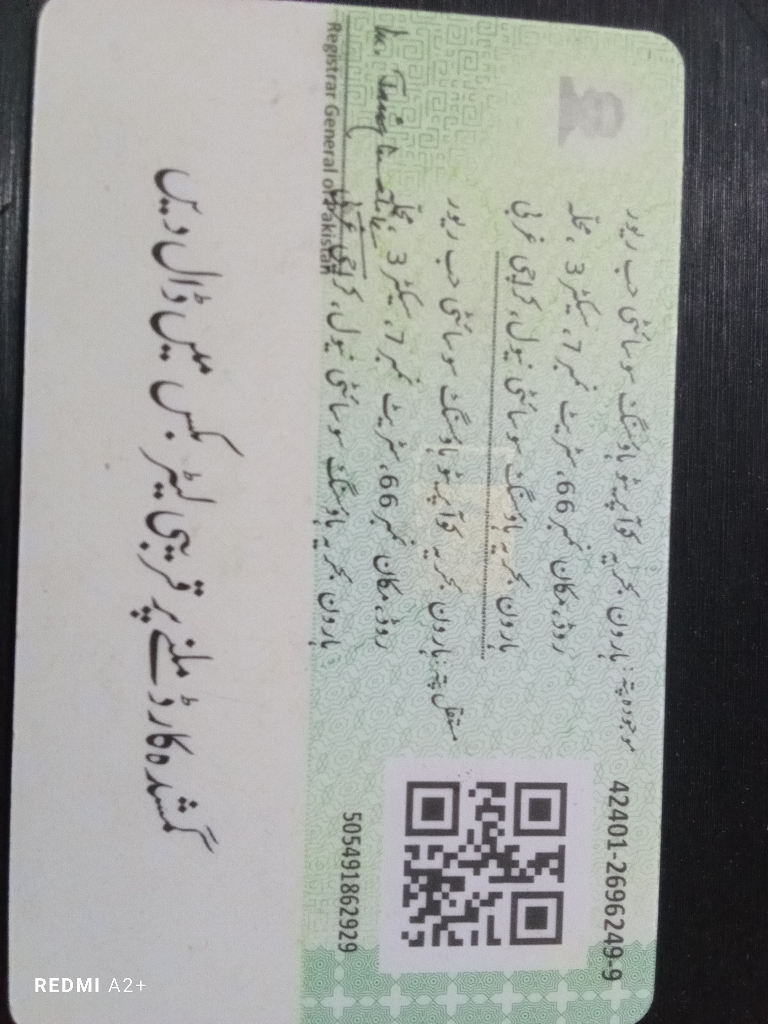 42401-2696249-9
موجودہ پتہ: ہارون بحریہ کوآپریٹو ہاؤسنگ سوسائٹی حب ریور
روڈ، مکان نمبر 66، سٹریٹ نمبر 7، سیکٹر 3، محلہ
ہارون بحریہ ہاؤسنگ سوسائٹی نیول، کراچی غربی
مستقل پتہ: ہارون بحریہ کوآپریٹو ہاؤسنگ سوسائٹی حب ریور
روڈ، مکان نمبر 66، سٹریٹ نمبر 7، سیکٹر 3، محلہ
ہارون بحریہ ہاؤسنگ سوسائٹی نیول، کراچی غربی
505491862929
Registrar General of Pakistan
گمشدہ کارڈ ملنے پر قریبی لیٹر بکس میں ڈال دیں
REDMI A2+